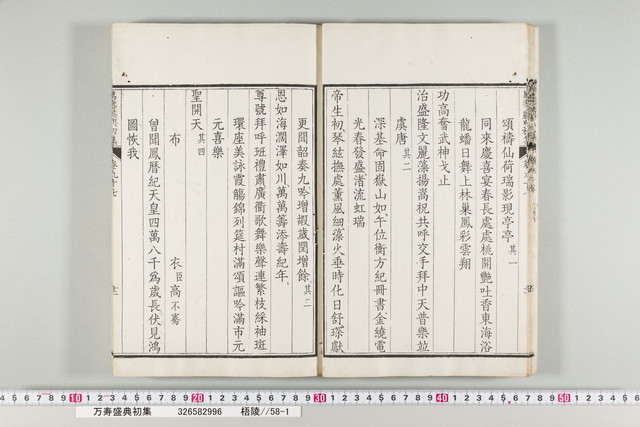 頌禱仙荷瑞影現亭亭其一
同來慶喜宴春長處處桃開艷吐香東海浴
龍蟠日舞上林巢鳳彩雲翔
功高奮武神戈止
治盛隆文麗藻揚嵩祝共呼交手拜中天普樂並
虞唐其二
深基命固嶽山如午位衡方紀冊書金繞電
光春發盛渚流虹瑞
帝生初琴絃撫處薫風細藻火垂時化日舒琛獻
更聞韶奏九吟增嘏歲閏增餘其三
恩如海濶澤如川萬萬籌添壽紀年
尊號拜呼班禮肅廣衢歌舞樂聲連繁枝綵袖斑
環座美詠霞觴錦列筵村滿頌謳吟滿市元
元喜樂
聖開天其四
布衣臣高不騫
曾聞鳳曆紀天皇四萬八千爲歲長伏見鴻
圖恢我
卷九十七
万寿盛典初集 326582996 梧陵//58-1